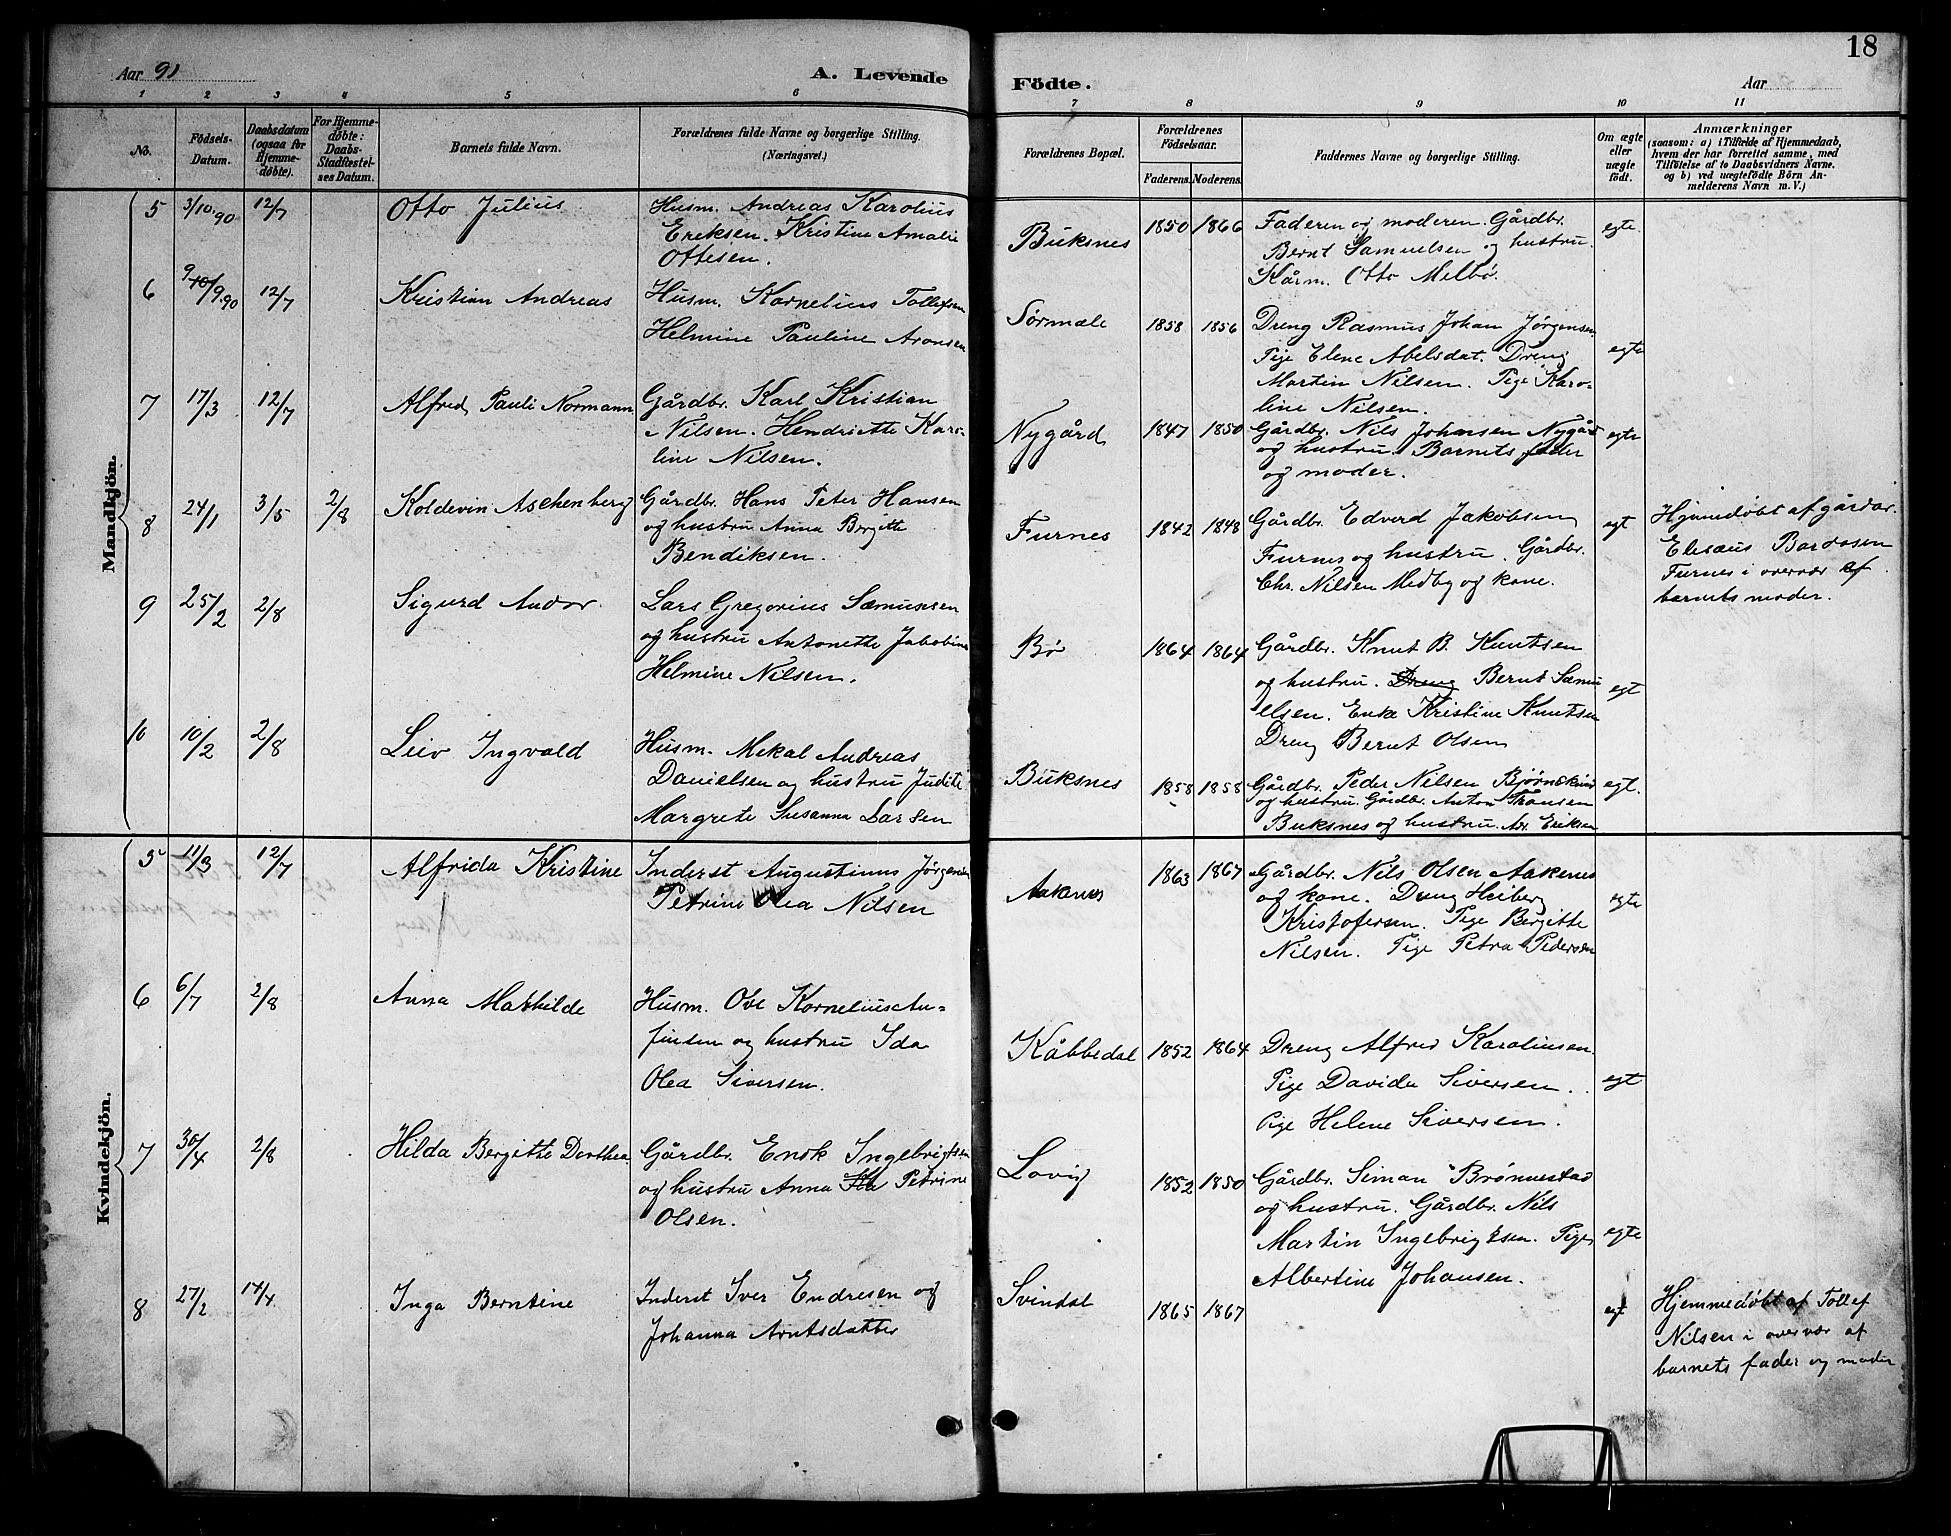 18
Aar 91
A. Levende
Födte.
Aar
1 2 3 4 5 6
7 8 9 10 11
No.
Födsels-
Datum.
Daabsdatum
(ogsaa for
Hjemme-
döbte).
For Hjemme-
döbte:
Daabs-
Stadfæstel-
ses Datum.
Barnets fulde Navn.
Forældrenes fulde Navne og borgerlige Stilling.
(Næringsvei.)
Forældrenes Bopæl.
Forældrenes
Födselsaar.
Faderens. Moderens.
Faddernes Navne og borgerlige Stilling.
Om ægte
eller
uægte
födt.
Anmærkninger
(saasom: a) i Tilfælde af Hjemmedaab,
hvem der har forrettet samme, med
Tilföielse af to Daabsvidners Navne.
og b) ved uægtefödte Börn An-
melderens Navn m. V.)
Mandkjön.
5 3/10.90 12/7 Otto Julius
Husm. Andreas Karolius
Eriksen. Kristine Amalie
Ottesen.
Buksnes 1850 1866
Faderen og moderen. Gårdbr.
Bernt Samuelsen og hustru.
Kårm. Otto Melbö.
egte.
6 9/9.90 12/7 Kristian Andreas
Husm. Kornelius Tollefsen
Helmine Pauline Aronsen
Sørmæle 1858 1856
Dreng Rasmus Johan Jørgensen.
Pige Elene Abelsdat. Dreng
Martin Nilsen. Pige Karo-
line Nilsen.
egte
7 17/3 12/7 Alfred Pauli Normann
Gårdbr. Karl Kristian
Nilsen. Hendriette Karo-
line Nilsen.
Nygård 1847 1850
Gårdbr. Nils Johansen Nygård
og hustru. Barnets fader
og moder.
egte
8 24/1 3/5 2/8 Koldevin Aschenberg
Gårdbr. Hans Peter Hansen
og hustru Anna Bergitte
Bendiksen.
Furnes 1842 1848
Gårdbr. Edverd Jakobsen
Furnes og hustru. Gårdbr.
Chr. Nilsen Medby og kone.
egt
Hjemmedøbt af gårdbr.
Elisæus Bardosen
Furnes i overvær af
barnets moder.
9 25/2 2/8 Sigurd Andor.
Lars Gregorius Sæmunsen
og hustru Antonette Jakobine
Helmine Nilsen.
Bø 1864 1864
Gårdbr. Knut B. Knutsen
og hustru. Dreng Bernt Samu
elsen. Enke Kristine Knutsen
Dreng Bernt Olsen
egt
10 10/2 2/8 Leiv Ingvald
Husm. Mekal Andreas
Danielsen og hustru Judite
Margrete Susanna Larsen
Buksnes 1858 1858
Gårdbr. Peder Nilsen Bjørnskin
og hustru. Gårdbr. Anton
Buksnes og hustru. Eriksen
egt.
Kvindekjön.
5 11/3 12/7 Alfrida Kristine
Inderst Augustinus Jørgensen
Petrine Olea Nilsen
Aakenes 1863 1867
Gårdbr. Nils Olsen Aakenes
og kone. Dreng Heiberg
Kristofersen. Pige Bergitte
Nilsen. Pige Petra Pedersen
egte
6 6/7 2/8 Anna Mathilde
Husm. Ove Kornelius An-
finsen og hustru Ida
Olea Siversen.
Kåbbedal 1852 1864
Dreng Alfred Karolinsen.
Pige Davida Siversen.
Pige Helene Siversen.
egt
7 30/4 2/8 Hilda Bergitte Dorthea
Gårdbr. Enok Ingebrigtsen
og hustru Anna Petrine
Olsen.
Lovig 1852 1850
Gårdbr. Siman Brønnestad
og hustru. Gårdbr. Nils
Martin Ingebrigtsen. Pige
Albertine Johansen.
egte
8 27/2 17/4 Inga Berntine
Inderst Iver Endresen og
Johanna Arntsdatter
Svindal 1865 1867
egt
Hjemmedøbt af Tollef
Nilsen i overvær af
barnets fader og moder